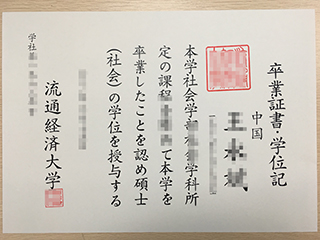 卒業証書・学位記
中国
本学社会学部 会学科所
定の課程 て本学を
卒業したことを認め碩士
(社会)の学位を授与する
学社
流通経済大学